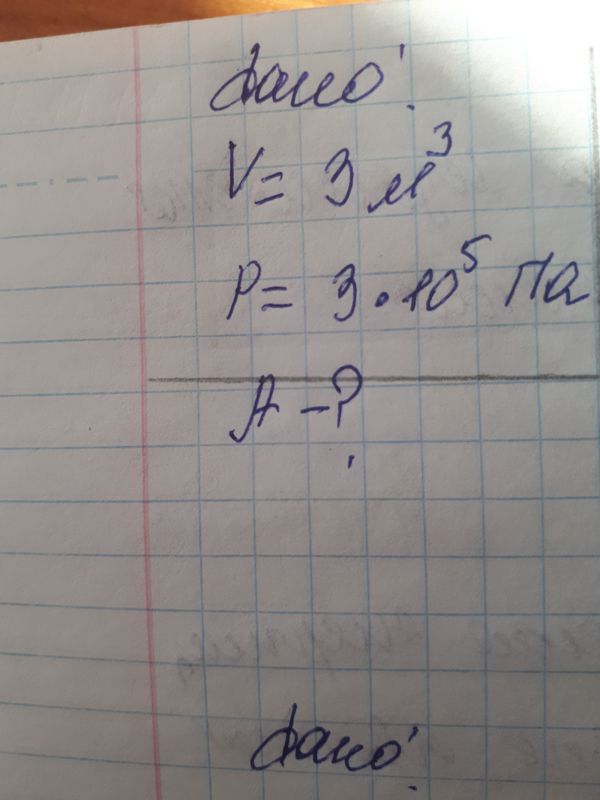 Дано:
V = 3 м³
P = 3 • 10⁵ Па
A - ?
Дано: